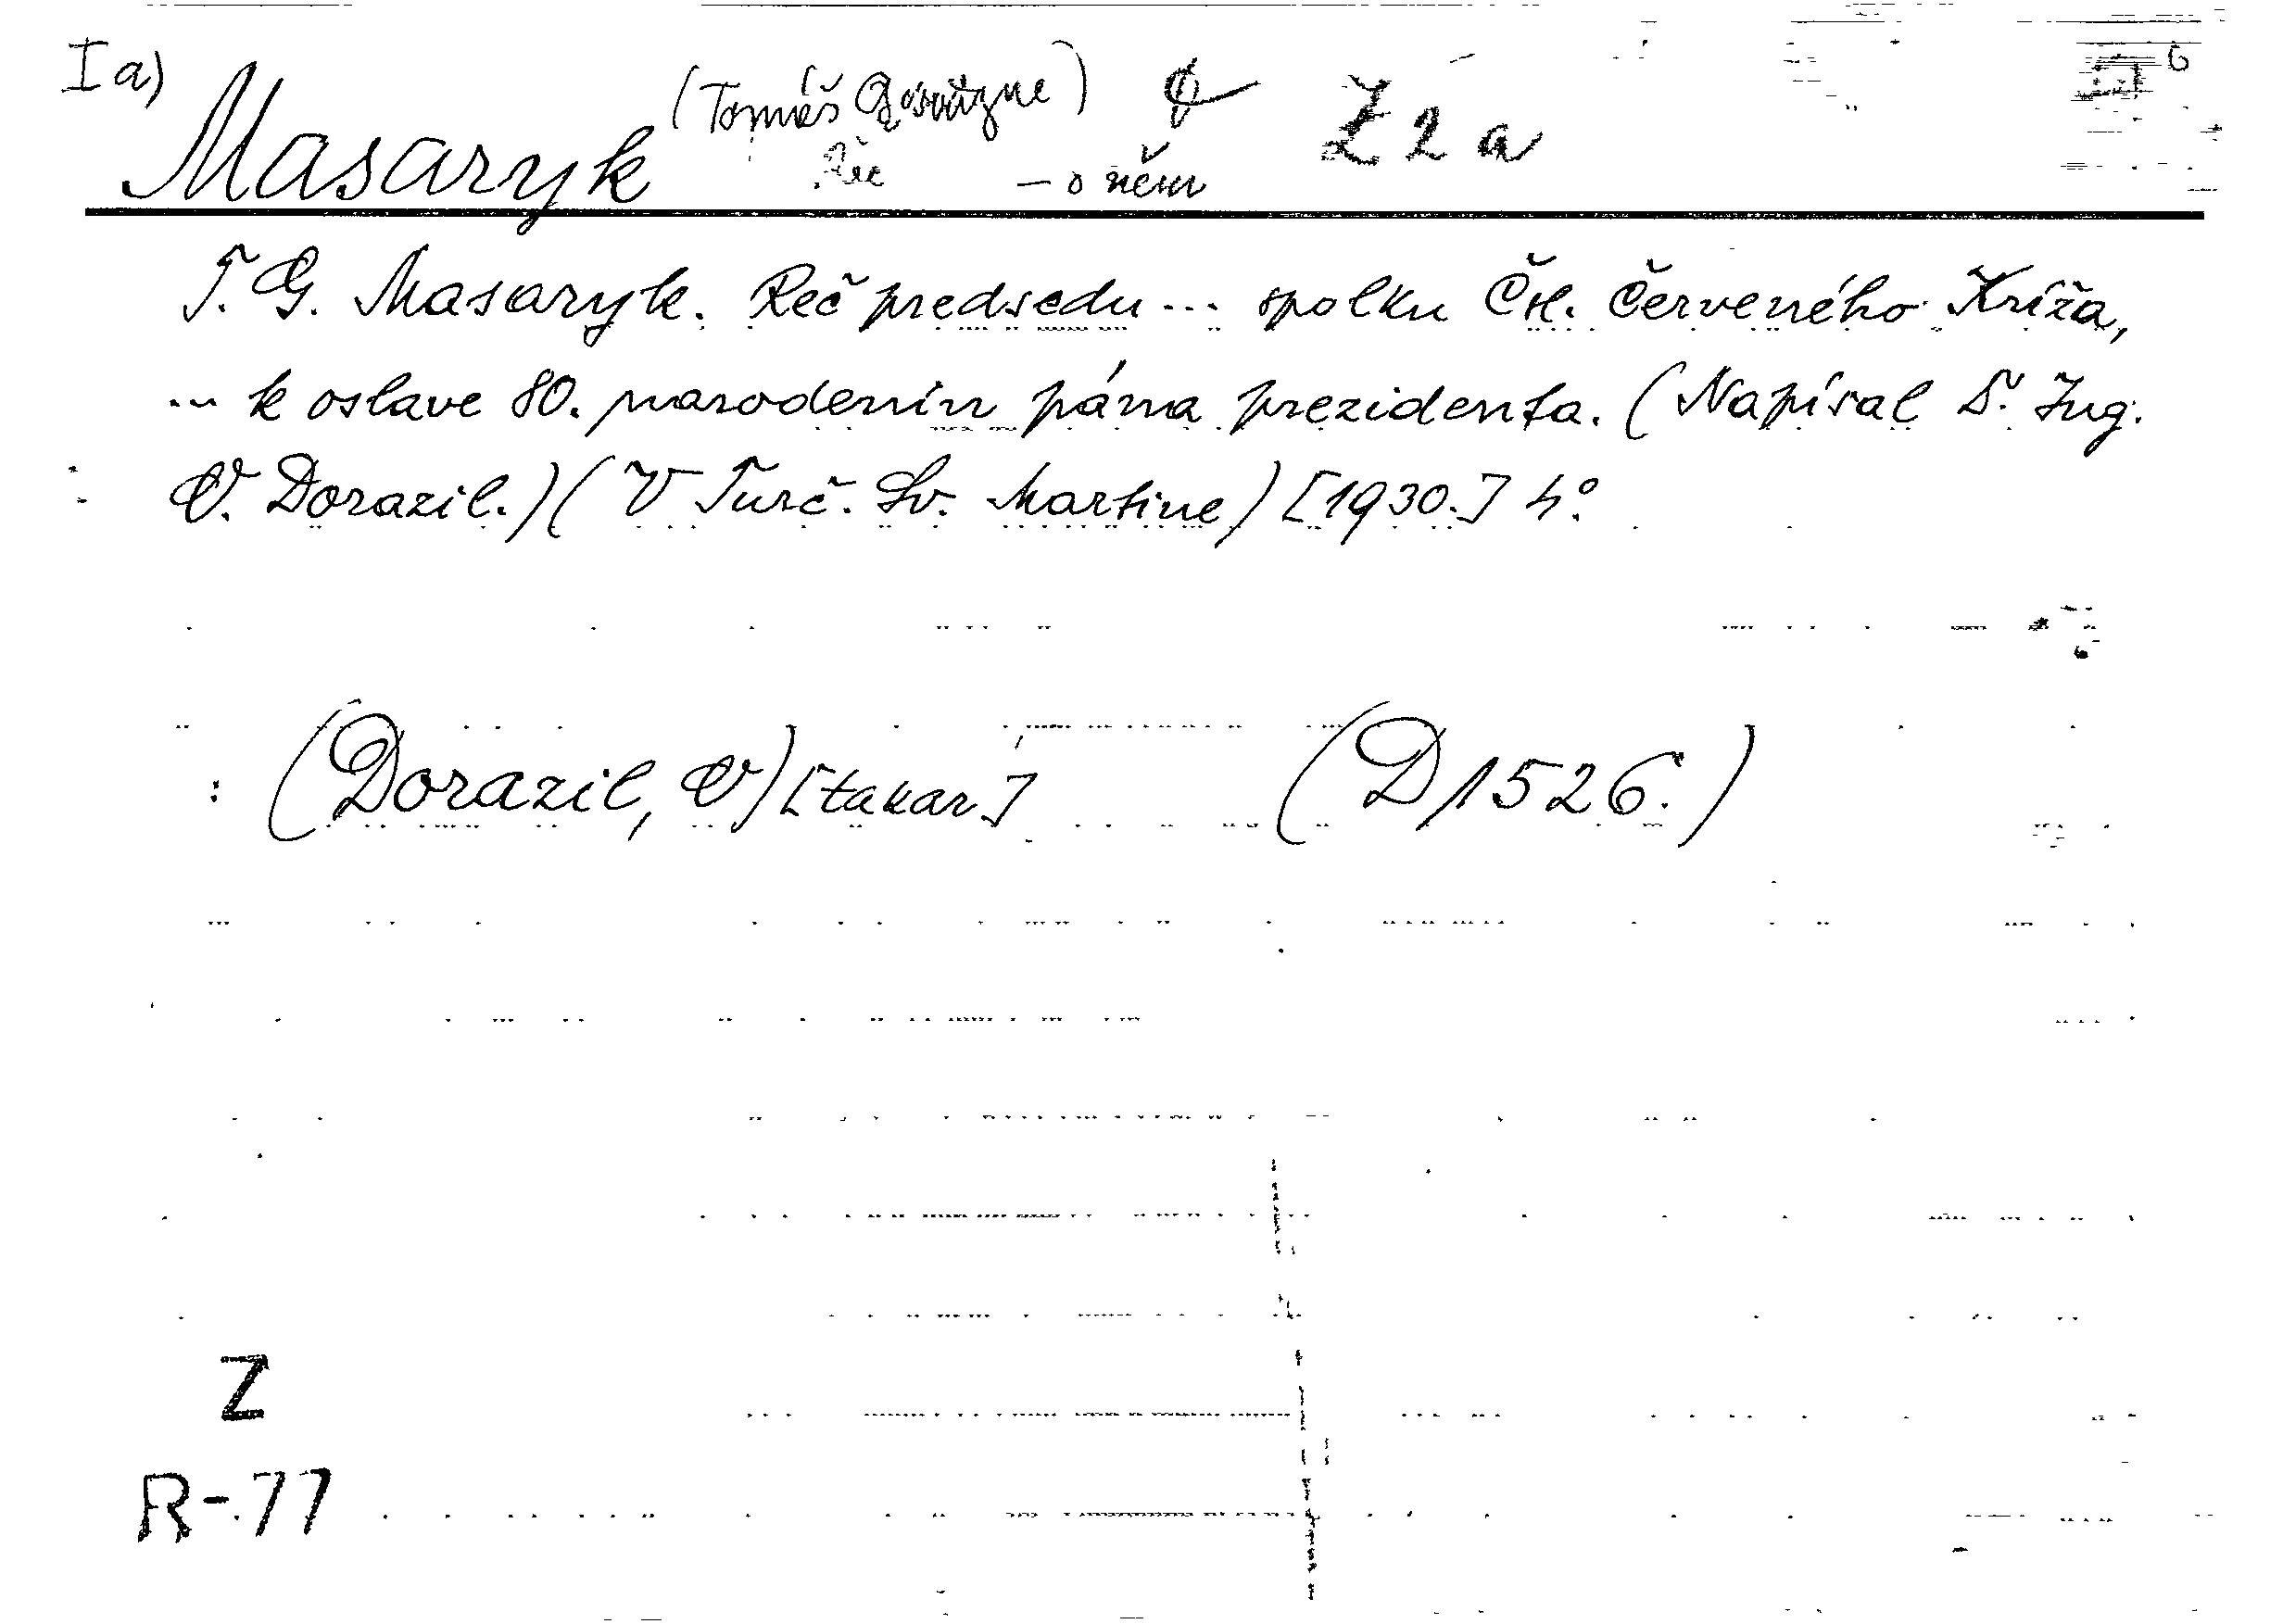 I a)
Masaryk (Tomáš Garrigue) Z 2 a
Řec — o něm
T. G. Masaryk. Reč predsedu ... spolku Čsl. Červeného Kríža,
... k oslave 80. narodenín pána prezidenta. (Napísal Dr. Ing.
V. Dorazil.) (V Turč. Sv. Martine) [1930.] 4°.
: (Dorazil, V) [takar] (D 1526.)
Z
R-77